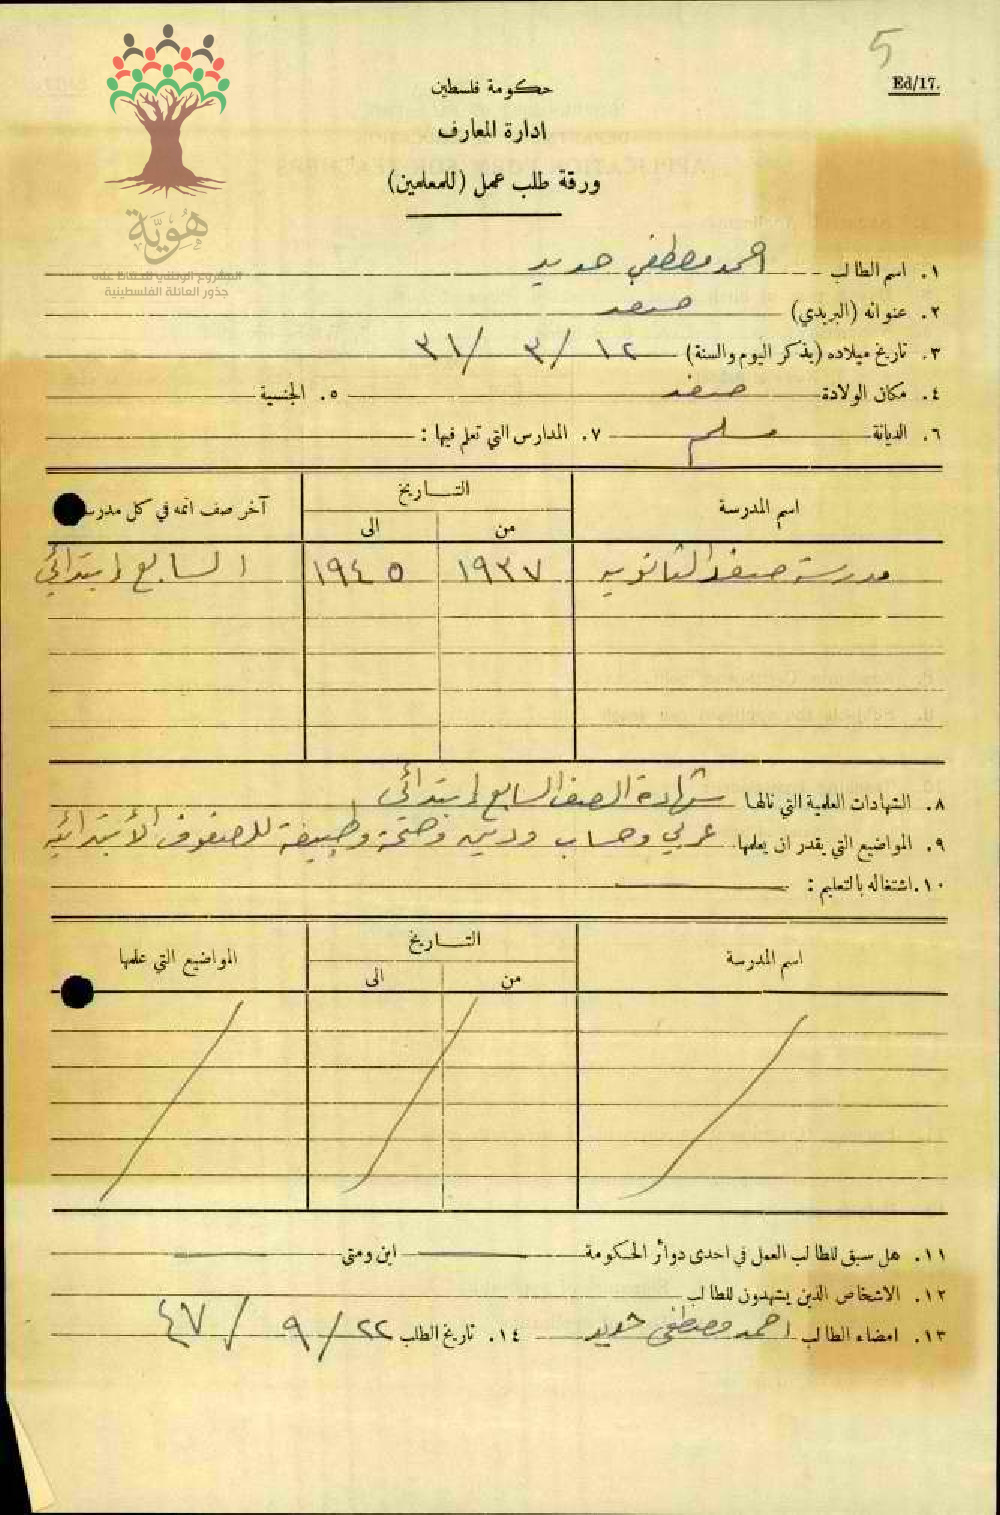 5
Ed/17.
حكومة فلسطين
ادارة المعارف
ورقة طلب عمل (للمعلمين)
هُوِيَّة
المشروع الوطني للحفاظ على
جذور العائلة الفلسطينية
١. اسم الطالب احمد مصطفى حديد
٢. عنوانه (البريدي) صفد
٣. تاريخ ميلاده (يذكر اليوم والسنة) ١٢ / ٣ / ٣١
٤. مكان الولادة صفد ٥. الجنسية
٦. الديانة مسلم ٧. المدارس التي تعلم فيها :
اسم المدرسة التاريخ آخر صف اتمه في كل مدرسة
من الى
مدرسة صفد الثانويه ١٩٣٧ ١٩٤٥ السابع ابتدائي
٨. الشهادات العلمية التي نالها شهادة الصف السابع ابتدائي
٩. المواضيع التي يقدر ان يعلمها عربي وحساب ودين وصحة وطبيعة للصفوف الأبتدائيه
١٠. اشتغاله بالتعليم :
اسم المدرسة التاريخ المواضيع التي علمها
من الى
١١. هل سبق للطالب العمل في احدى دوائر الحكومة اين ومتى
١٢. الاشخاص الذين يشهدون للطالب
١٣. امضاء الطالب احمد مصطفى حديد ١٤. تاريخ الطلب ٢٢ / ٩ / ٤٧